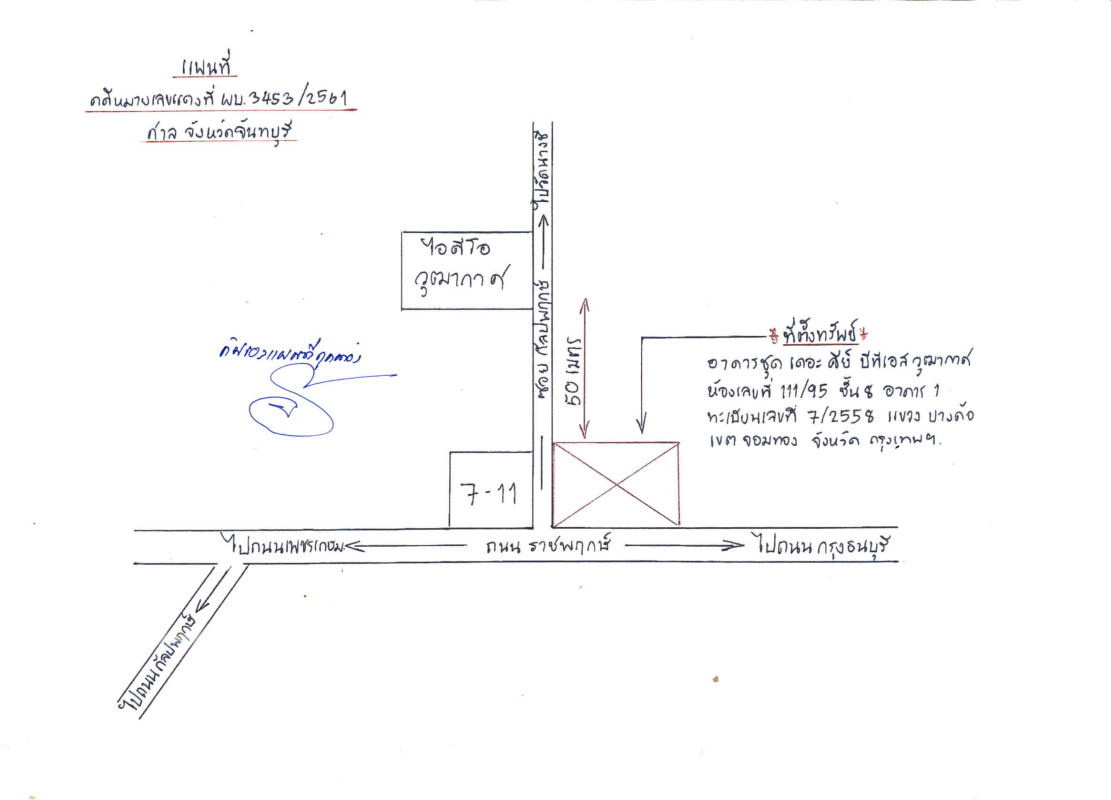 แผนที่
คดีหมายเลขแดงที่ ผบ.3453/2561
ศาล จังหวัดจันทบุรี
ไปวัดนางชี
ไอดีโอ
วุฒากาศ
ซอย กัลปพฤกษ์
50 เมตร
*ที่ตั้งทรัพย์*
อาคารชุด เดอะ คีย์ บีทีเอส วุฒากาศ
ห้องเลขที่ 111/95 ชั้น 8 อาคาร 1
ทะเบียนเลขที่ 7/2558 แขวง บางค้อ
เขต จอมทอง จังหวัด กรุงเทพฯ.
7-11
ไปถนนเพชรเกษม
ถนน ราชพฤกษ์
ไปถนน กรุงธนบุรี
ไปถนนกัลปพฤกษ์